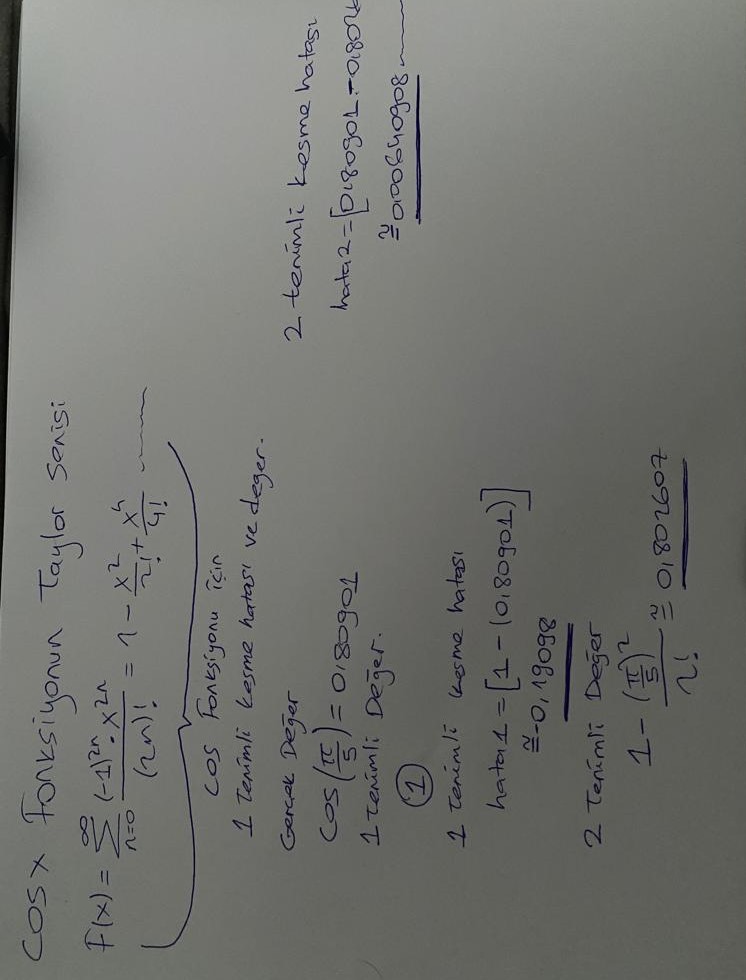 COS x Fonksiyonun Taylor Serisi
F(x) = ∞ Σ n=0 (-1)^2n . x^2n / (2n)! = 1 - x^2/2! + x^4/4!
COS Fonksiyonu için
1 Terimli kesme hatası ve değer.
Gerçek Değer
COS(π/5) = 0,80901
1 Terimli Değer.
1
1 Terimli kesme hatası
hata1 = [1 - (0,80901)]
≅ -0,19098
2 Terimli Değer
1 - (π/5)^2 / 2! ≅ 0,802607
2 terimli kesme hatası
hata2 = [0,80901 - 0,802
≅ 0,00640908